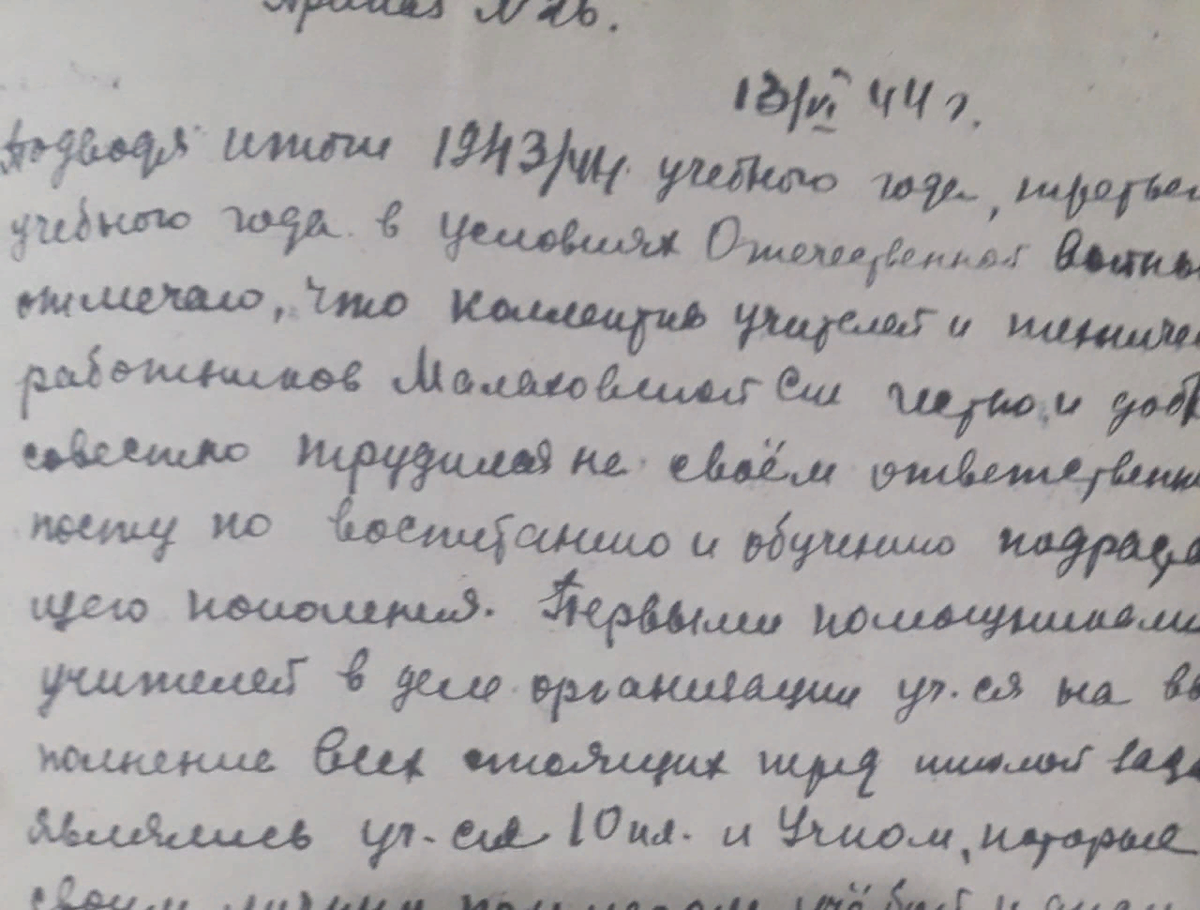 Приказ № 26.
13/VI 44 г.
Подводя итоги 1943/44. учебного года, третьег
учебного года в условиях Отечественной Войны
отмечаю, что коллектив учителей и техниче
работников Малаховской Сш честно и добр
совестно трудился на своём ответственн
посту по воспитанию и обучению подраста
щего поколения. Первыми помощниками
учителей в деле организации уч-ся на вы
полнение всех стоящих перед школой зада
являлись уч-ся 10 кл. и Учком, которые
своим личным примером учёбы и